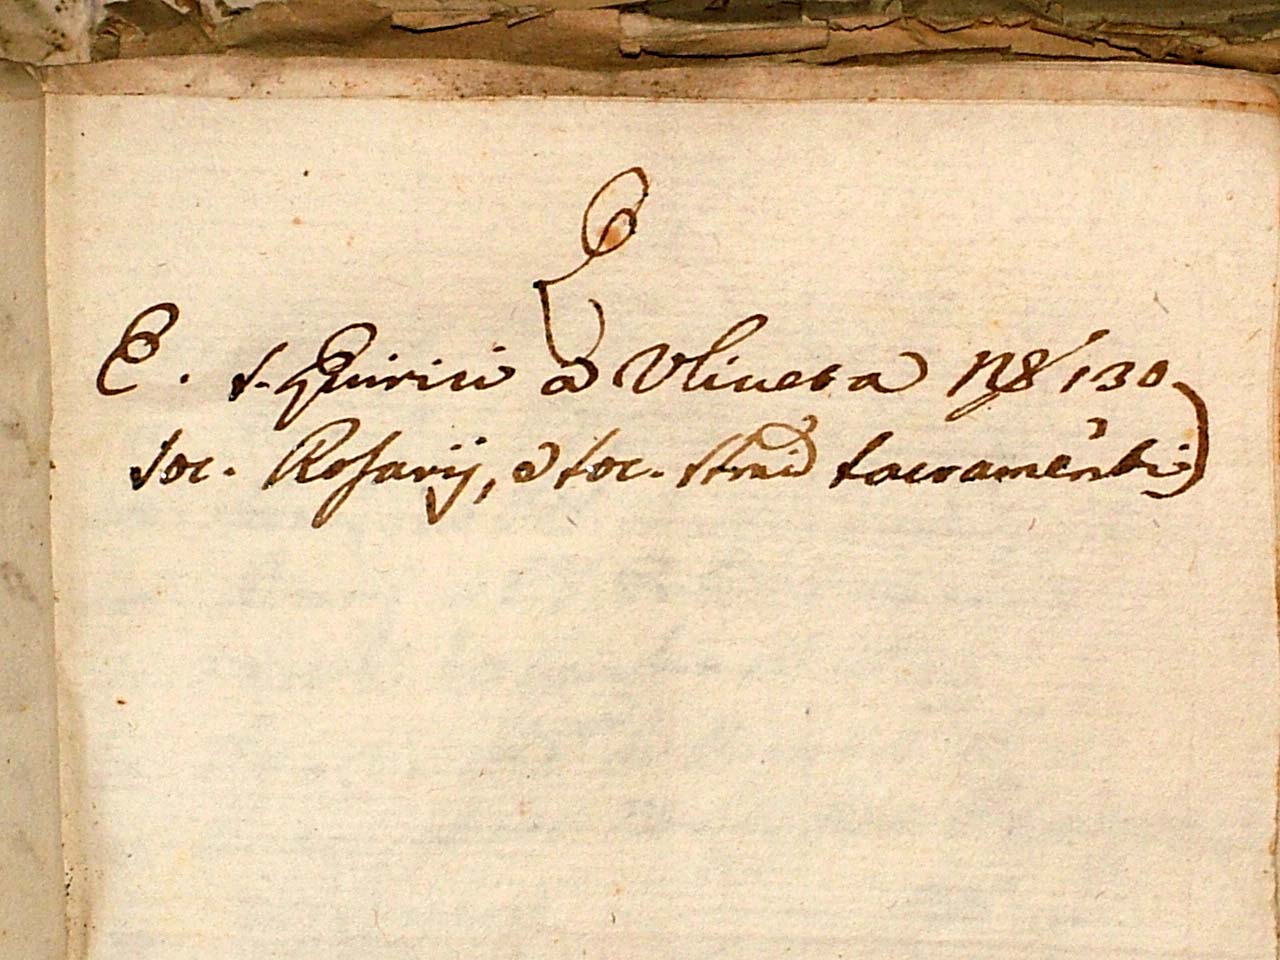 E. S. Quirici a Vliueta N8 130
Soc. Rosarij, et soc. SSmi Sacramenti